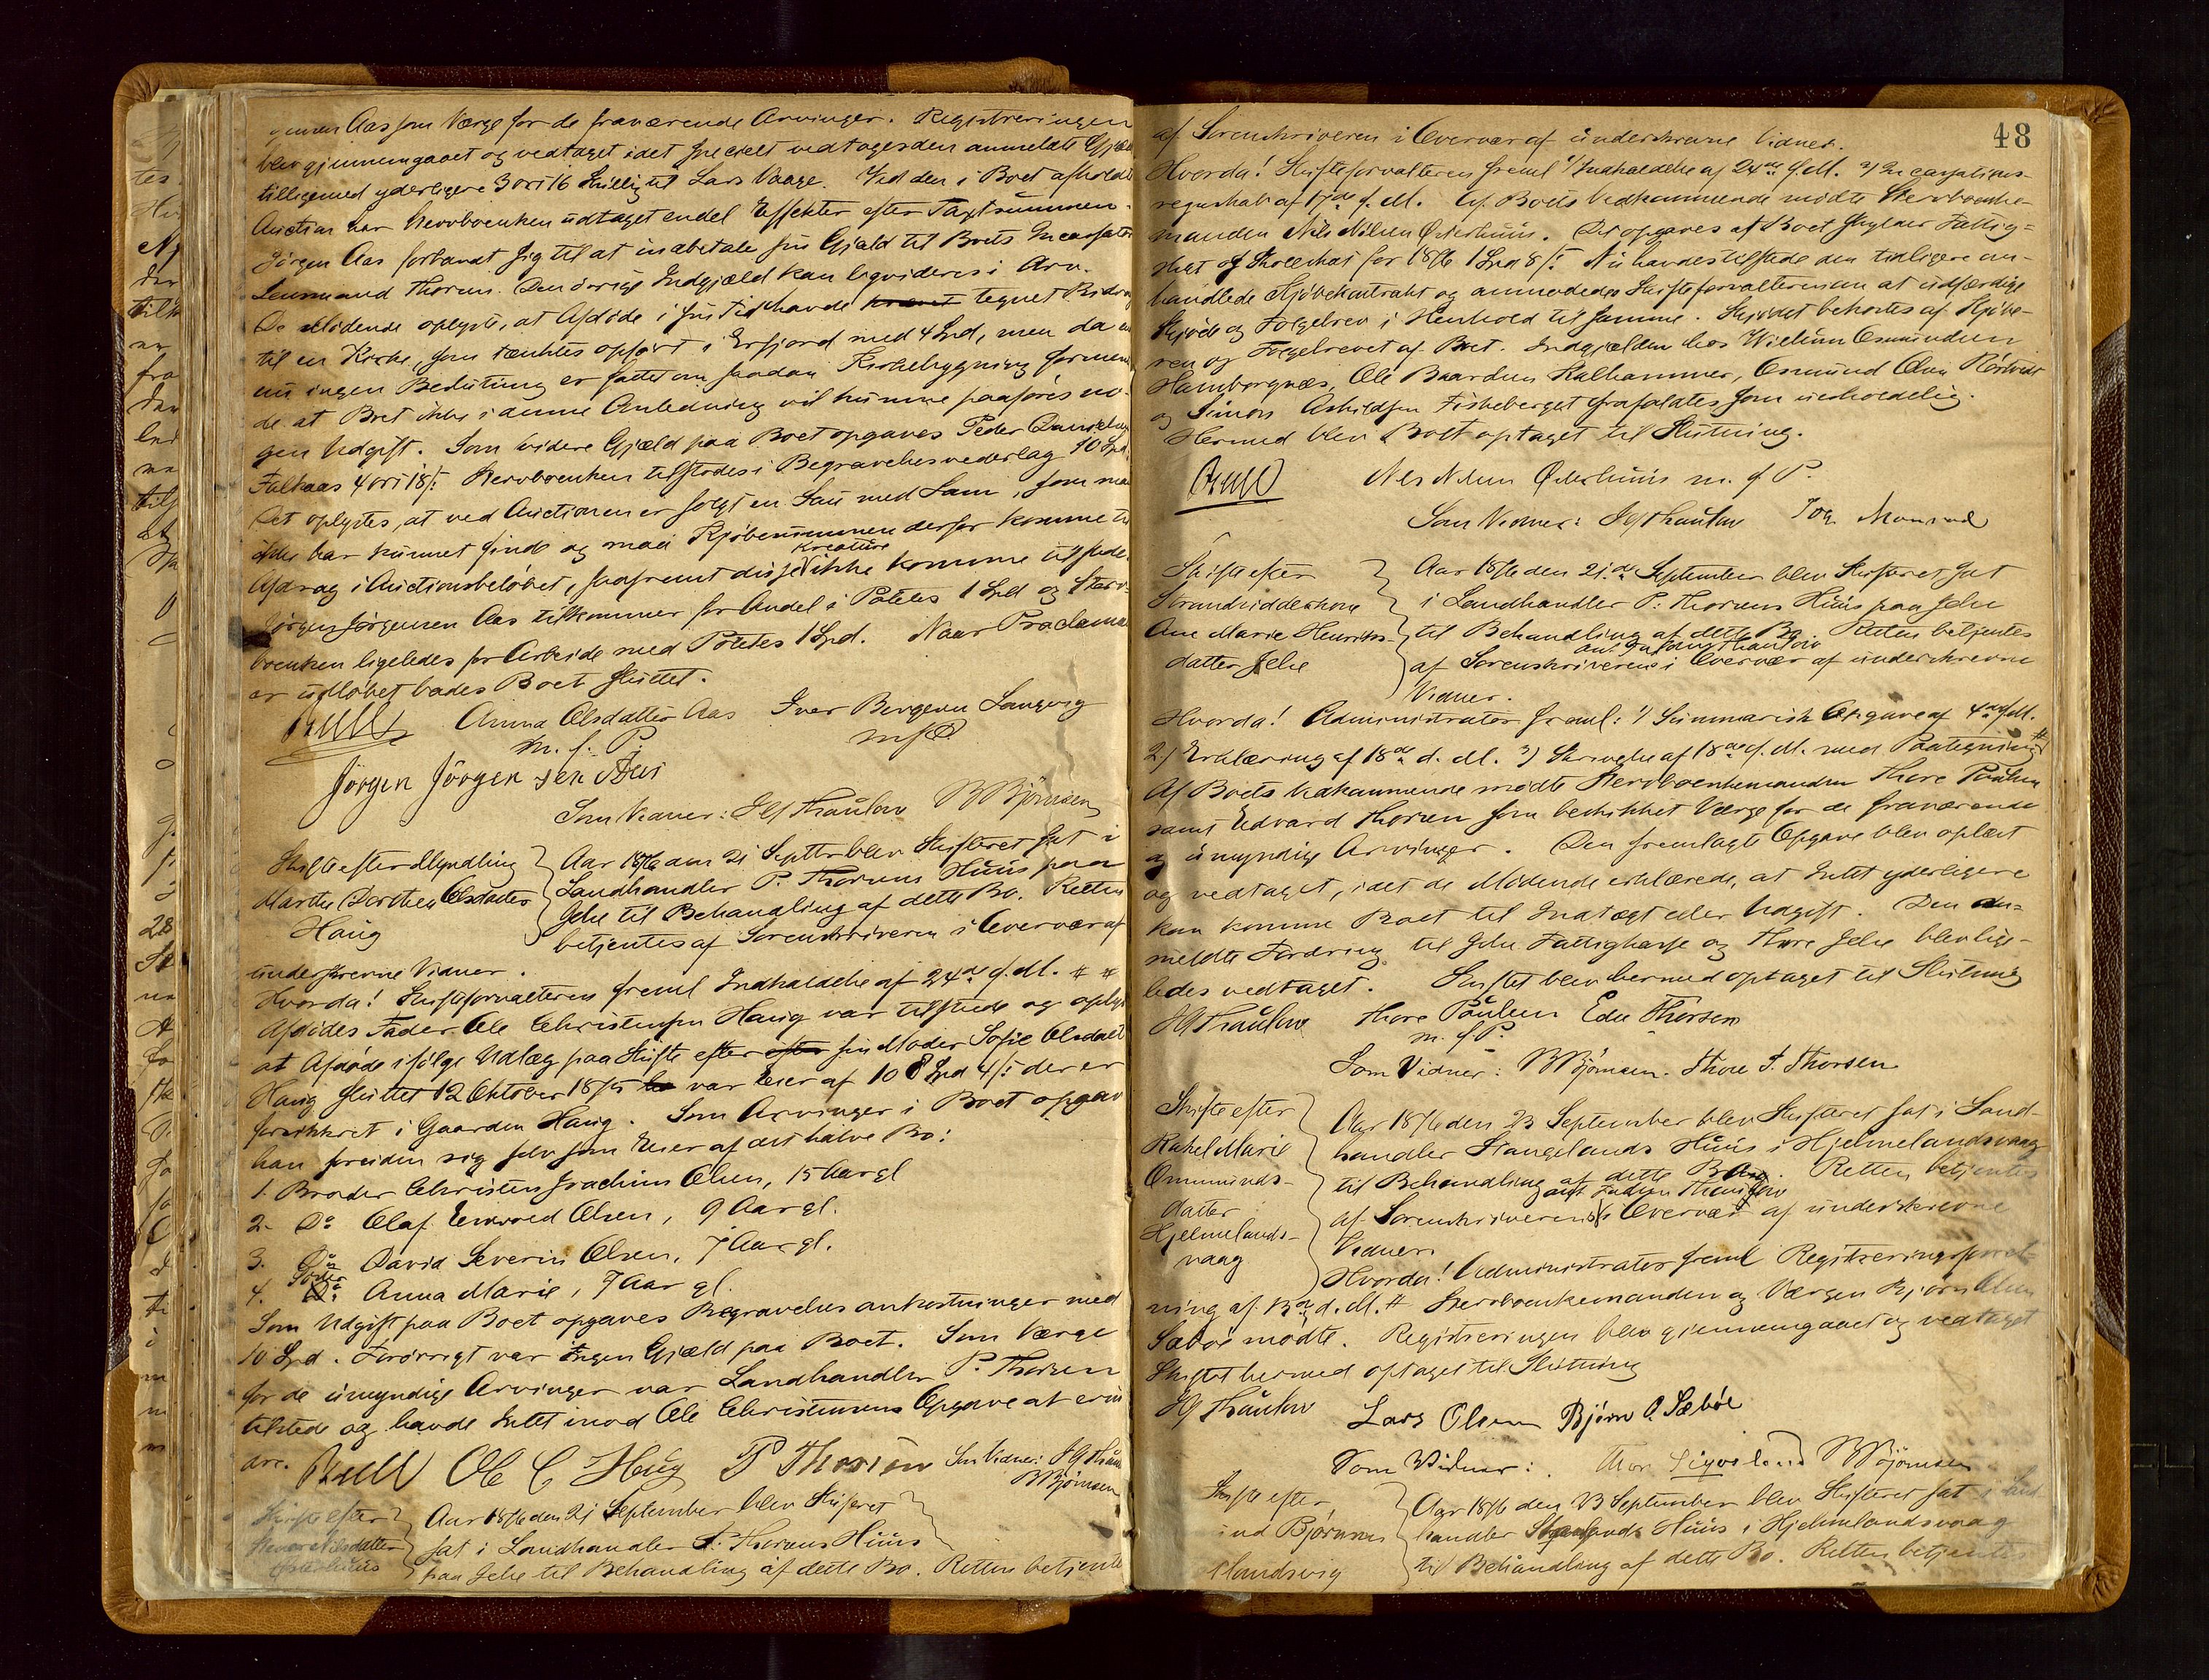 gensen Aas som Værge for de fraværende Arvinger. Registreringen
blev gjennemgaaet og vedtaget idet specielt vedtages den anmeldte Gjæld
tilligemed yderligere 3 ort 16 Skillig til Lars Vaage. Ved den i Boet afholdte
Auction har Stervboenken udtaget endel Effekter efter Taxtsummen.
Jørgen Aas forbandt sig til at indbetale sin Gjæld til Boets Incassator
Lensmand Thorsen. Den øvrige Indgjæld kan liqvideres i Arv.
De Mødende oplyste, at Afdøde i sin Tid havde tegnet Bidrag
til en Kirke, som tænktes opført i Erfjord med 4 Spd, men da en
nu ingen Beslutning er fattet om saadan Kirkebygning formen
de at Boet ikke i denne Anledning vil kunne paaføres no-
gen Udgift. Som videre Gjæld paa Boet opgaves Peder Danielsen
Falkaas 4 ort 18 /: Stervboenken tilstodes i Begravelsesvederlag 10 Spd.
Det oplystes, at ved Auctionen er solgt en Sau med Lam, som man
ikke har kunnet finde og maa Kjøbesummen derfor komme til
Afdrag i Auctionsbeløbet, saafremt disse Kreature ikke komme tilstede.
Jørgen Jørgensen Aas tilkommer for Andel i Potetes 1 Spd og Sterv-
boenken ligeledes for Arbeide med Potetes 1 Spd. Naar Proclama
er udløbet bades Boet sluttet.
Anna Olsdatter Aas Iver Bergesen Langvig
m. f. P. m f P.
Jørgen Jörgen sen Aas
Som Vidner: JG Thaulow B Bjørnsen
Skifte efter Myndling
Marthe Dorthea Olsdatter
Haug
Aar 1876 den 21 Septbr blev Skifteret sat i
Landhandler P. Thorsens Huus paa
Jelse til Behandling af dette Bo. Retten
betjentes af Sorenskriveren i Overvær af
underskrevne Vidner.
Hvorda! Skifteforvalteren freml Indkaldelse af 24de f. M.
Afdødes Fader Ole Christensen Haug var tilstede og oplyste
at Afdøde ifølge Udlæg paa Skifte efter sin Moder Sofie Olsdatt
Haug sluttet 12 Oktober 1875 var Eier af 108 Spd 4 /: der er
forsikkret i Gaarden Haug. Som Arvinger i Boet opgav
han foruden sig selv som Eier af det halve Bo:
1. Broder Christen Joachim Olsen, 15 Aar gl
2. Do Olaf Edvard Olsen, 9 Aar gl.
3. Do David Severin Olsen, 7 Aar gl.
4. Søster Anna Marie, 7 Aar gl.
Som Udgift paa Boet opgaves Begravelses omkostninger med
10 Spd. Forøvrigt var Ingen Gjæld paa Boet. Som Værge
for de umyndige Arvinger var Landhandler P. Thorsen
tilstede og havde Intet imod Ole Christensens Opgave at erin
dre. Ole C Haug P Thorsen Som Vidner: JG Thaulow
B Bjørnsen
Skifte efter
Nilsdatter
Østerhuus
Aar 1876 den 21 September blev Skifteret
sat i Landhandler P. Thorsens Huus
paa Jelse til Behandling af dette Bo. Retten betjentes
48
af Sorenskriveren i Overvær af underskrevne Vidner.
Hvorda! Skifteforvalteren freml 1) Indkaldelse af 24de f. M. 2) Incassations-
regnskab af 17de f. M. Af Boets Vedkommende mødte Stervboenke-
manden Nils Nilsen Østerhuus. Det opgaves at Boet skylder Fattig-
skat og Skoleskat for 1876 1 Spd 8 /: Nu havdes tilstede den tidligere om-
handlede Kjøbekontrakt og anmodedes Skifteforvalteren om at udfærdige
Skjøde og Følgebrev i Henhold til samme. Skjødet bekostes af Kjøbe-
ren og Følgebrevet af Boet. Indgjælden hos Willum Osmundsen
Hamborgnæs, Ole Baardsen Kalhammer, Osmund Olsen
og Simon Askildsen Fiskeberget frafaldtes som uerholdelig.
Hermed blev Boet optaget til Slutning.
Nils Nilsen Østerhuus m. f P.
Som Vidner: JG Thaulow
Skifte efter
Strandsidderkone
Ane Marie Henriks-
datter Jelse
Aar 1876 den 21de September blev Skifteret sat
i Landhandler P. Thorsens Huus paa Jelse
til Behandling af dette Bo. Retten betjentes
af Sorenskriverens aut. Fuldm. Thaulow i Overvær af underskrevne
Vidner.
Hvorda! Administrator freml: 1) Summarisk Opgave af 4de f. M.
2) Erklæring af 18de d. M. 3) Skrivelse af 18de f. M. med Paategning #
Af Boets Vedkommende mødte Stervboenkemanden Thore Paulsen
samt Edvard Thorsen som beskikket Værge for de fraværende
og umyndige Arvinger. Den fremlagte Opgave blev oplæst
og vedtaget, idet de Mødende erklærede, at Intet yderligere
kan komme Boet til Indtægt eller Udgift. Den an-
meldte Fordring til Jelse Fattigkasse og Thore Jelse blev lige-
ledes vedtaget. Skiftet blev hermed optaget til Slutning
JG Thaulow Thore Paulsen Edv Thorsen
m. f P.
Som Vidner: B Bjørnsen. Thore T. Thorsen
Skifte efter
Rakel Marie
Osmunds-
datter
Hjelmelands-
vaag
Aar 1876 den 23 September blev Skifteret sat i Land-
handler Stangelands Huus i Hjelmelandsvaag
til Behandling af dette Bo. Retten betjentes
af Sorenskriverens aut Fuldm Thaulow i Overvær af underskrevne
Vidner.
Hvorda! Administrator freml Registreringsforret-
ning af 13de d. M. # Stervboenkemanden og Værgen Bjørn Olsen
Sæbøe mødte. Registreringen blev gjennemgaaet og vedtaget
Skiftet hermed optaget til Slutning
JG Thaulow Lars Olsen Bjørn O. Sæbøe
Som Vidner: B Bjørnsen
Skifte efter
Bjørnsen
Aar 1876 den 23 September blev Skifteret sat i Land
handler Stangelands Huus i Hjelmelandsvaag
til Behandling af dette Bo. Retten betjentes